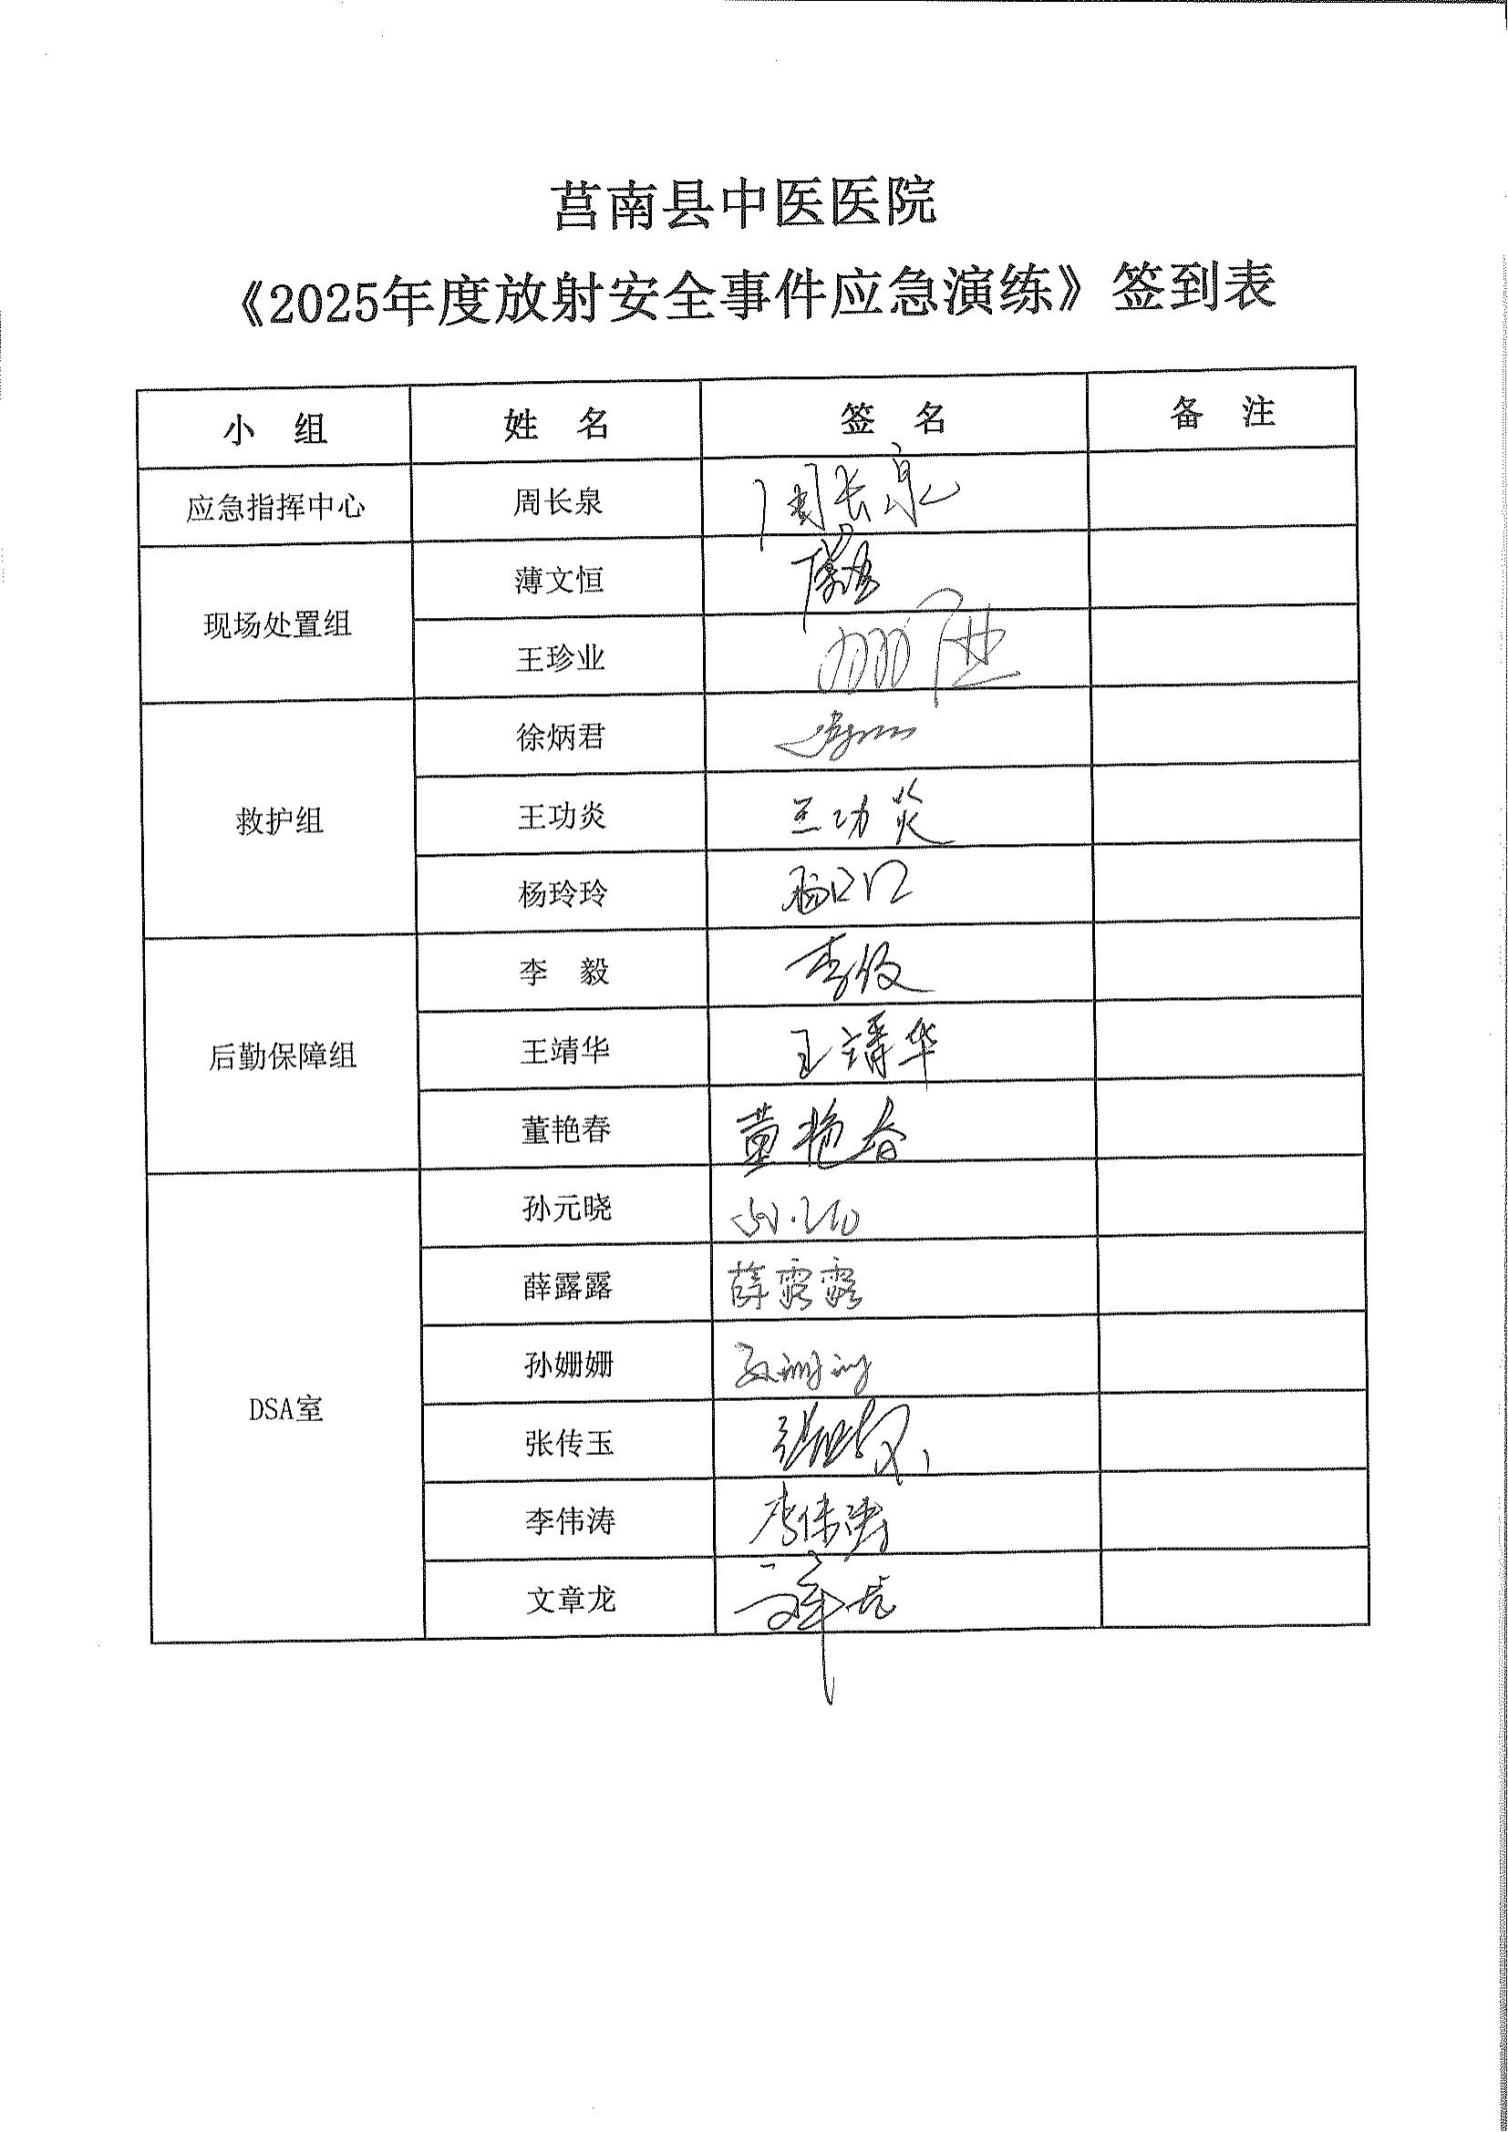 莒南县中医医院
《2025年度放射安全事件应急演练》签到表
小 组 姓 名 签 名 备 注
应急指挥中心 周长泉 周长泉
现场处置组
薄文恒
王珍业
救护组
徐炳君
王功炎 王功炎
杨玲玲
后勤保障组
李 毅
王靖华 王靖华
董艳春 董艳春
DSA室
孙元晓
薛露露 薛露露
孙姗姗 孙姗姗
张传玉
李伟涛 李伟涛
文章龙